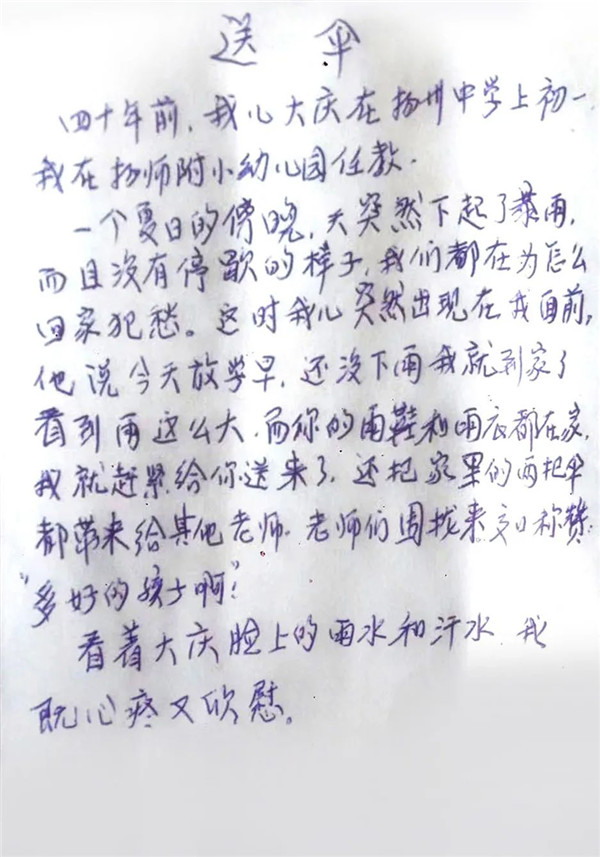 送 伞
四十年前，我儿大庆在扬州中学上初一
我在扬师附小幼儿园任教.
一个夏日的傍晚，天突然下起了暴雨，
而且没有停歇的样子，我们都在为怎么
回家犯愁。这时我儿突然出现在我面前，
他说今天放学早，还没下雨我就到家了
看到雨这么大，而你的雨鞋和雨衣都在家，
我就赶紧给你送来了，还把家里的两把伞
都带来给其他老师。老师们围拢来，交口称赞：
"多好的孩子啊！"
看着大庆脸上的雨水和汗水，我
既心疼又欣慰。